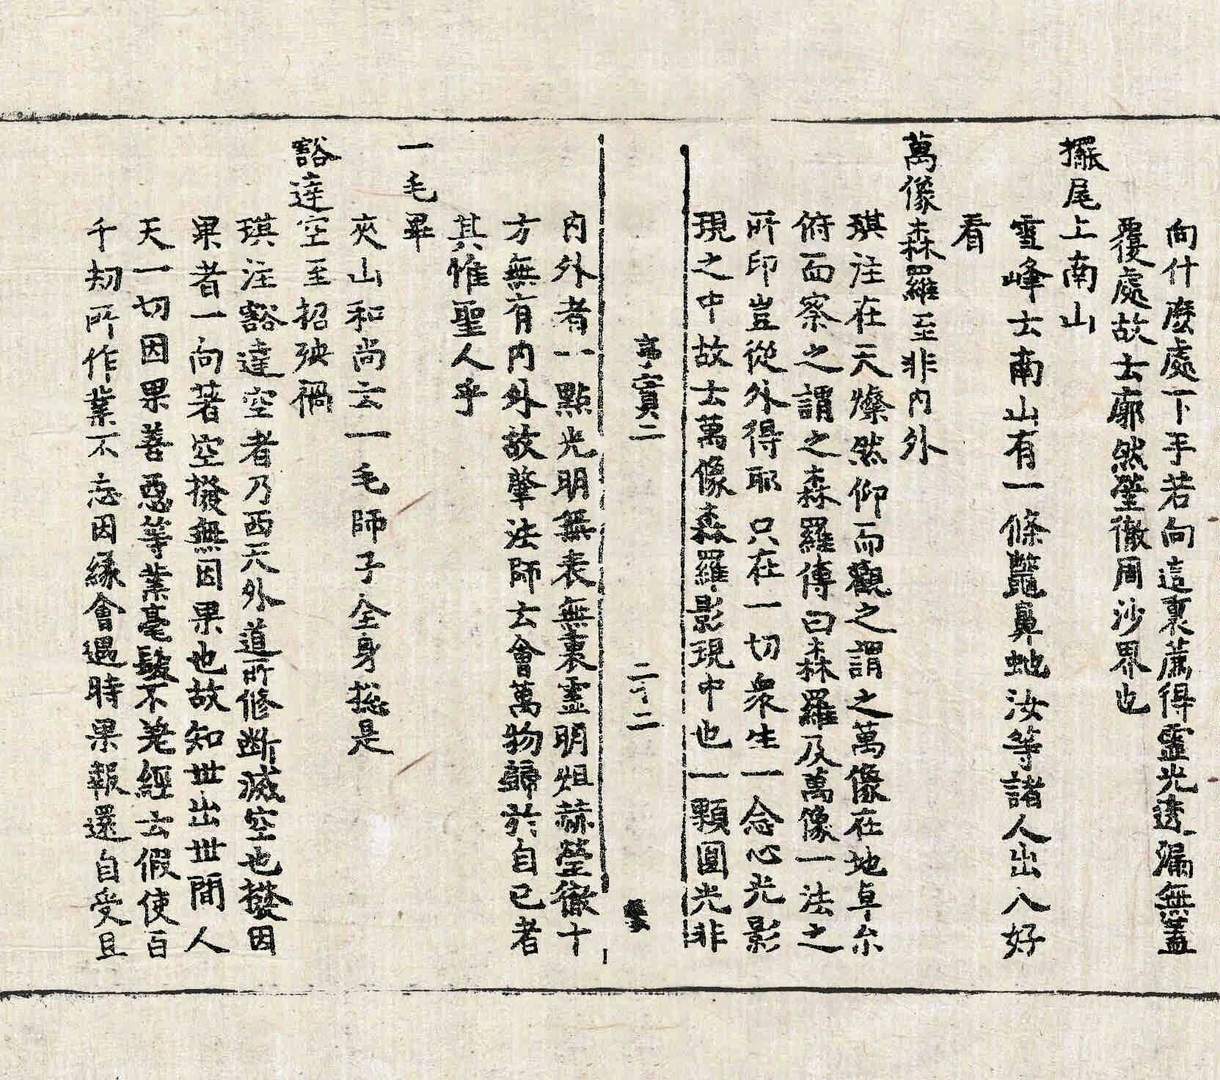 向什麽處下手若向這裏薦得靈光透漏無盖
覆處故士廓然瑩徹周沙界也
擺尾上南山
雪峰士南山有一條鼈鼻虵汝等諸人出入好
看
萬像森羅至非内外
琪注在天燦然仰而觀之謂之萬像在地卓尒
俯而察之謂之森羅傳曰森羅及萬像一法之
所印豈從外得耶只在一切衆生一念心光影
現之中故士萬像森羅影現中也一顆圓光非
二
二十二
内外者一點光明無表無裏靈明烜赫瑩徹十
方無有内外故肇法師云會萬物歸於自己者
其惟聖人乎
一毛畢
夾山和尚云一毛師子全身揔是
豁達空至招殃禍
琪注豁達空者乃西天外道所修断滅空也撥因
果者一向著空撥無因果也故知世出世間人
天一切因果善惡等業毫髮不差經云假使百
千刼所作業不忘因緣會遇時果報還自受且